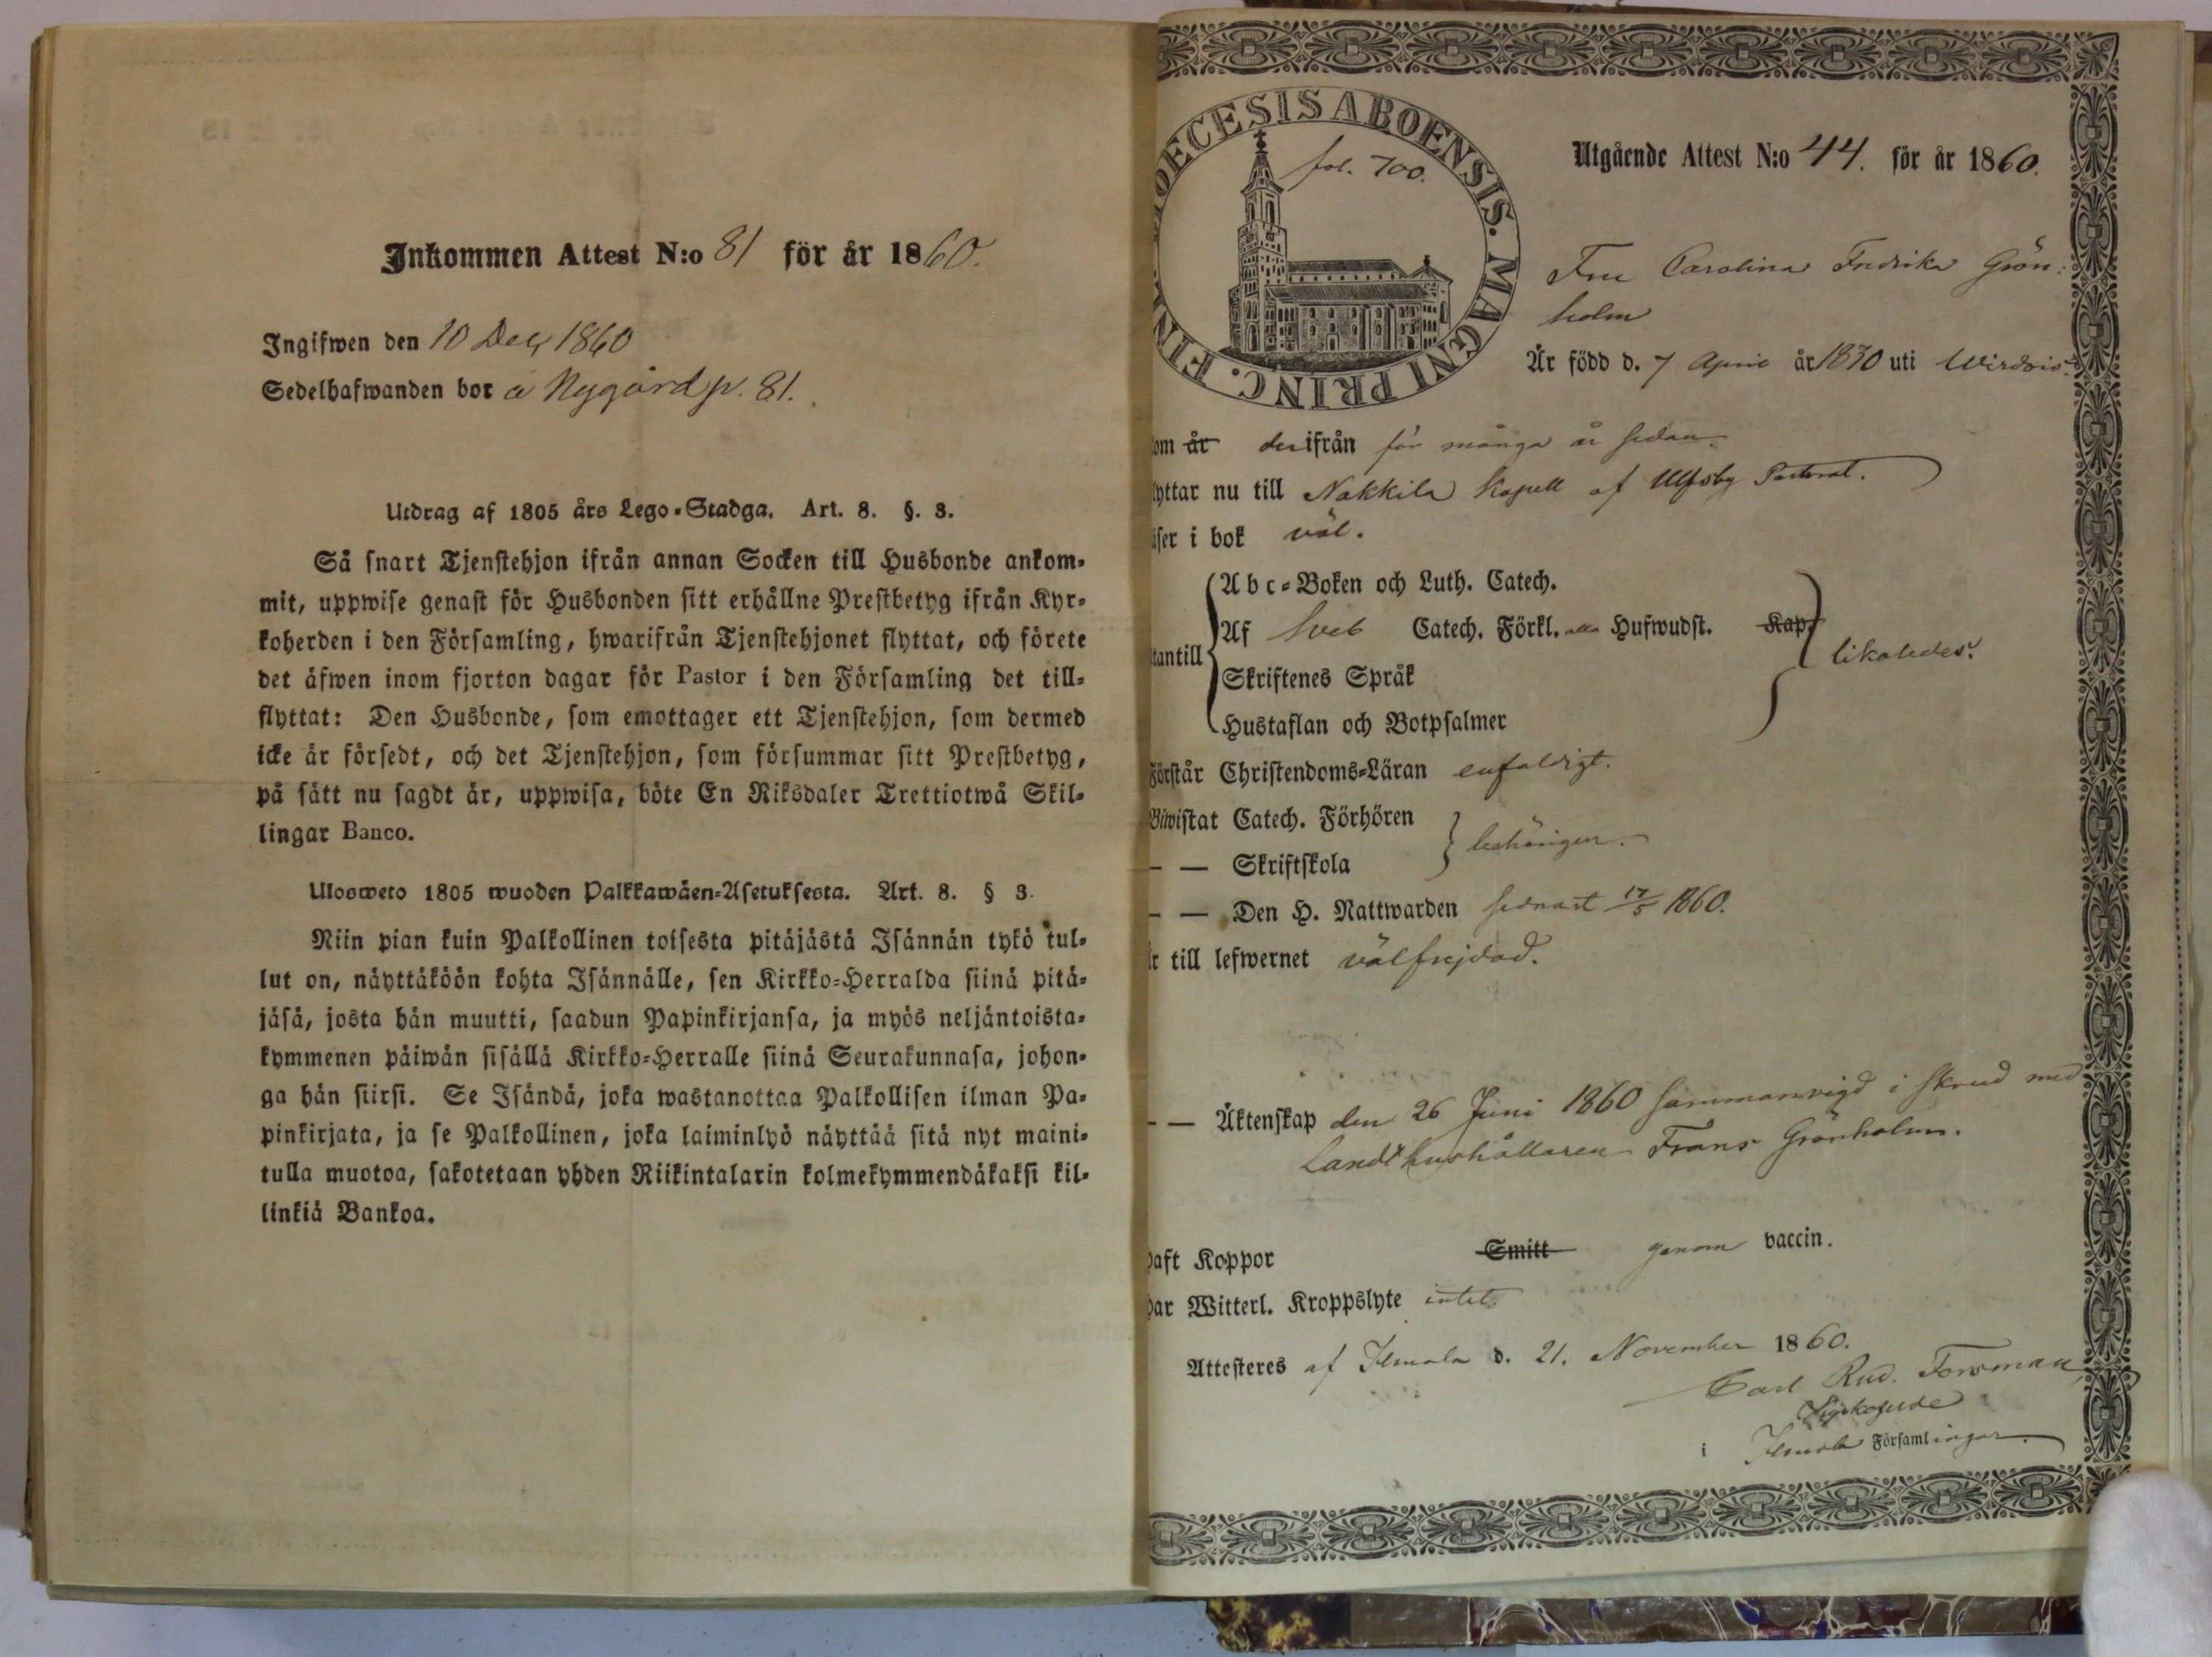 Inkommen Attest N:o 81 för år 1860.
Ingifwen den 10 Dec 1860
Sedelhafwanden bor å Nygård p. 81.
Utdrag af 1805 års Lego-Stadga. Art. 8. §. 3.
Så snart Tjenstehjon ifrån annan Socken till Husbonde ankom-
mit, uppwise genast för Husbonden sitt erhållne Prestbetyg ifrån Kyr-
koherden i den Församling, hwarifrån Tjenstehjonet flyttat, och förete
det äfwen inom fjorton dagar för Pastor i den Församling det till-
flyttat: Den Husbonde, som emottager ett Tjenstehjon, som dermed
icke är försedt, och det Tjenstehjon, som försummar sitt Prestbetyg,
på sätt nu sagdt är, uppwisa, böte En Riksdaler Trettiotwå Skil-
lingar Banco.
Ulosweto 1805 wuoden Palkkawäen-Asetuksesta. Art. 8. § 3.
Niin pian kuin Palkollinen toisesta pitäjästä Isännän tykö tul-
lut on, näyttäköön kohta Isännälle, sen Kirkko-Herralda siinä pitä-
jäsä, josta hän muutti, saadun Papinkirjansa, ja myös neljäntoista-
kymmenen päiwän sisällä Kirkko-Herralle siinä Seurakunnasa, johon-
ga hän siirsi. Se Isändä, joka wastanottaa Palkollisen ilman Pa-
pinkirjata, ja se Palkollinen, joka laiminlyö näyttää sitä nyt maini-
tulla muotoa, sakotetaan yhden Riikintalarin kolmekymmendäkaksi kil-
linkiä Bankoa.
OECESIS ABOENSIS. MAGNI PRINC. FIN
fol. 700.
Utgående Attest N:o 44. för år 1860.
Fru Carolina Fredrika Grön-
holm
Är född d. 7 April år 1830 uti Wirdois.
om år derifrån för många år sedan.
lyttar nu till Nakkila Kapell af Ulfsby Pastorat.
äser i bok väl.
tantill
Abc-Boken och Luth. Catech.
Af Sveb Catech. Förkl. alla Hufwudst. Kap.
Skriftenes Språk
Hustaflan och Botpsalmer
likaledes.
Förstår Christendoms-Läran enfaldigt.
Biwistat Catech. Förhören
— — Skriftskola
behörigen.
— — Den H. Nattwarden sednast 17/5 1860.
r till lefwernet välfrejdad.
— — Äktenskap den 26 Juni 1860 sammanvigd i Skrud med
Landthushållaren Frans Grönholm.
haft Koppor Smitt genom vaccin.
har Witterl. Kroppslyte intet.
Attesteres af Ilmola d. 21. November 1860.
Carl Rud. Forsman
Kyrkoherde
i Ilmola Församlingar.